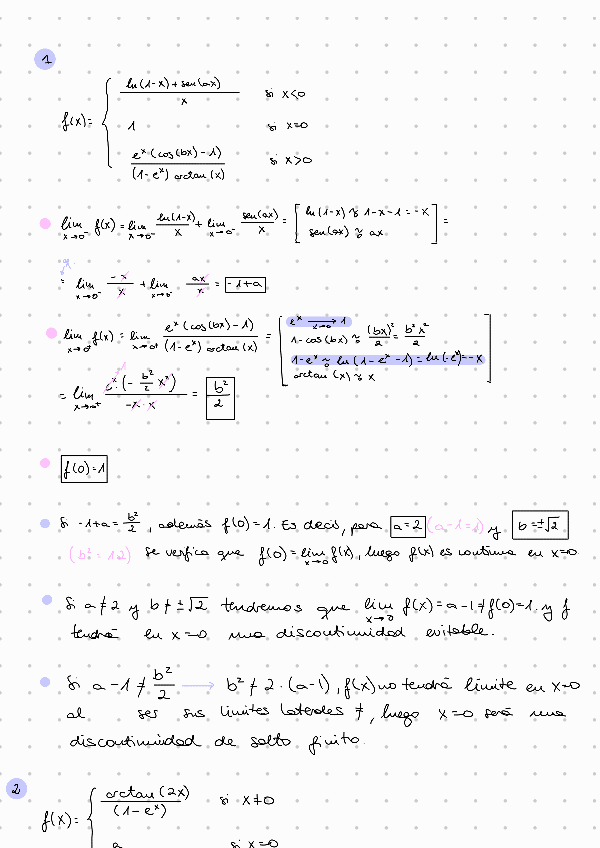 1
f(x)= { (ln(1-x)+sen(ax))/x si x<0
1 si x=0
(e^x (cos(bx)-1))/((1-e^x) arctan(x)) si x>0
lim x→0⁻ f(x) = lim x→0⁻ ln(1-x)/x + lim x→0⁻ sen(ax)/x = [ ln(1-x) ≈ 1-x-1 = -x
sen(ax) ≈ ax ] =
= lim x→0⁻ -x/x + lim x→0⁻ ax/x = -1+a
lim x→0⁺ f(x) = lim x→0⁺ (e^x (cos(bx)-1))/((1-e^x) arctan(x)) = [ e^x → x→0 1
1-cos(bx) ≈ (bx)²/2 = b²x²/2
1-e^x ≈ ln(1-e^x-1) = ln(-e^x) = -x
arctan(x) ≈ x ]
= lim x→0⁺ e^x·(-b²/2 x²)/(-x·x) = b²/2
f(0)=1
Si -1+a = b²/2, además f(0)=1. Es decir, para a=2 (a-1=1) y b=±√2
(b²=1·2) se verfica que f(0)=lim x→0 f(x), luego f(x) es continua en x=0
Si a≠2 y b≠±√2 tendremos que lim x→0 f(x)=a-1≠f(0)=1 y f
tendrá en x=0 una discontinuidad evitable.
Si a-1≠b²/2 → b²≠2·(a-1), f(x) no tendrá límite en x=0
al ser sus límites laterales ≠, luego x=0 será una
discontinuidad de salto finito.
2
f(x)= { arctan(2x)/(1-e^x) si x≠0
a si x=0